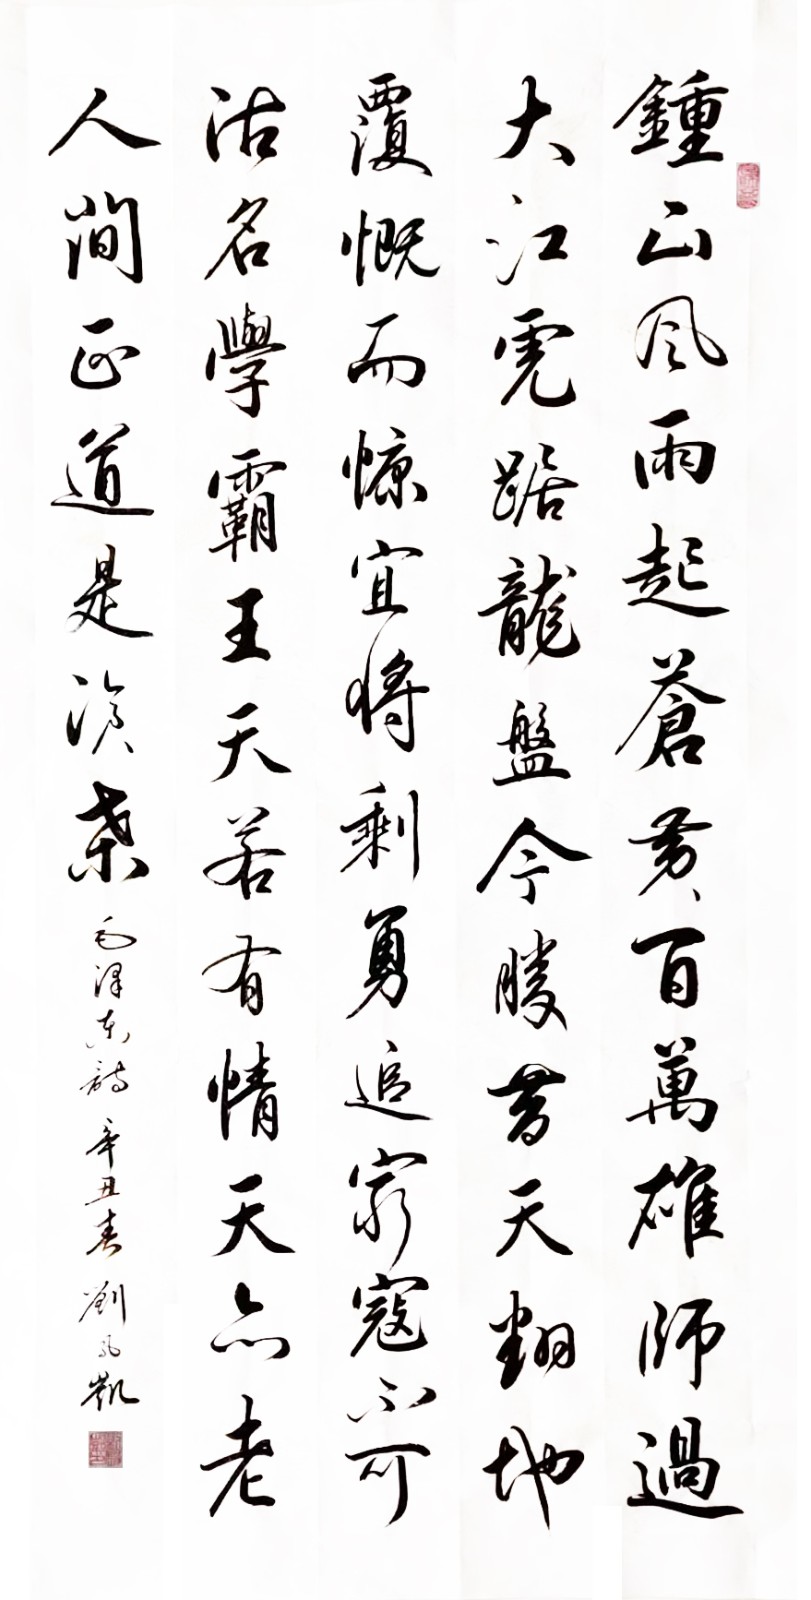 鍾山風雨起蒼黄百萬雄師過
大江虎踞龍盤今勝昔天翻地
覆慨而慷宜將剩勇追窮寇不可
沽名學霸王天若有情天亦老
人間正道是滄桑 毛澤東詩 辛丑春 劉凱